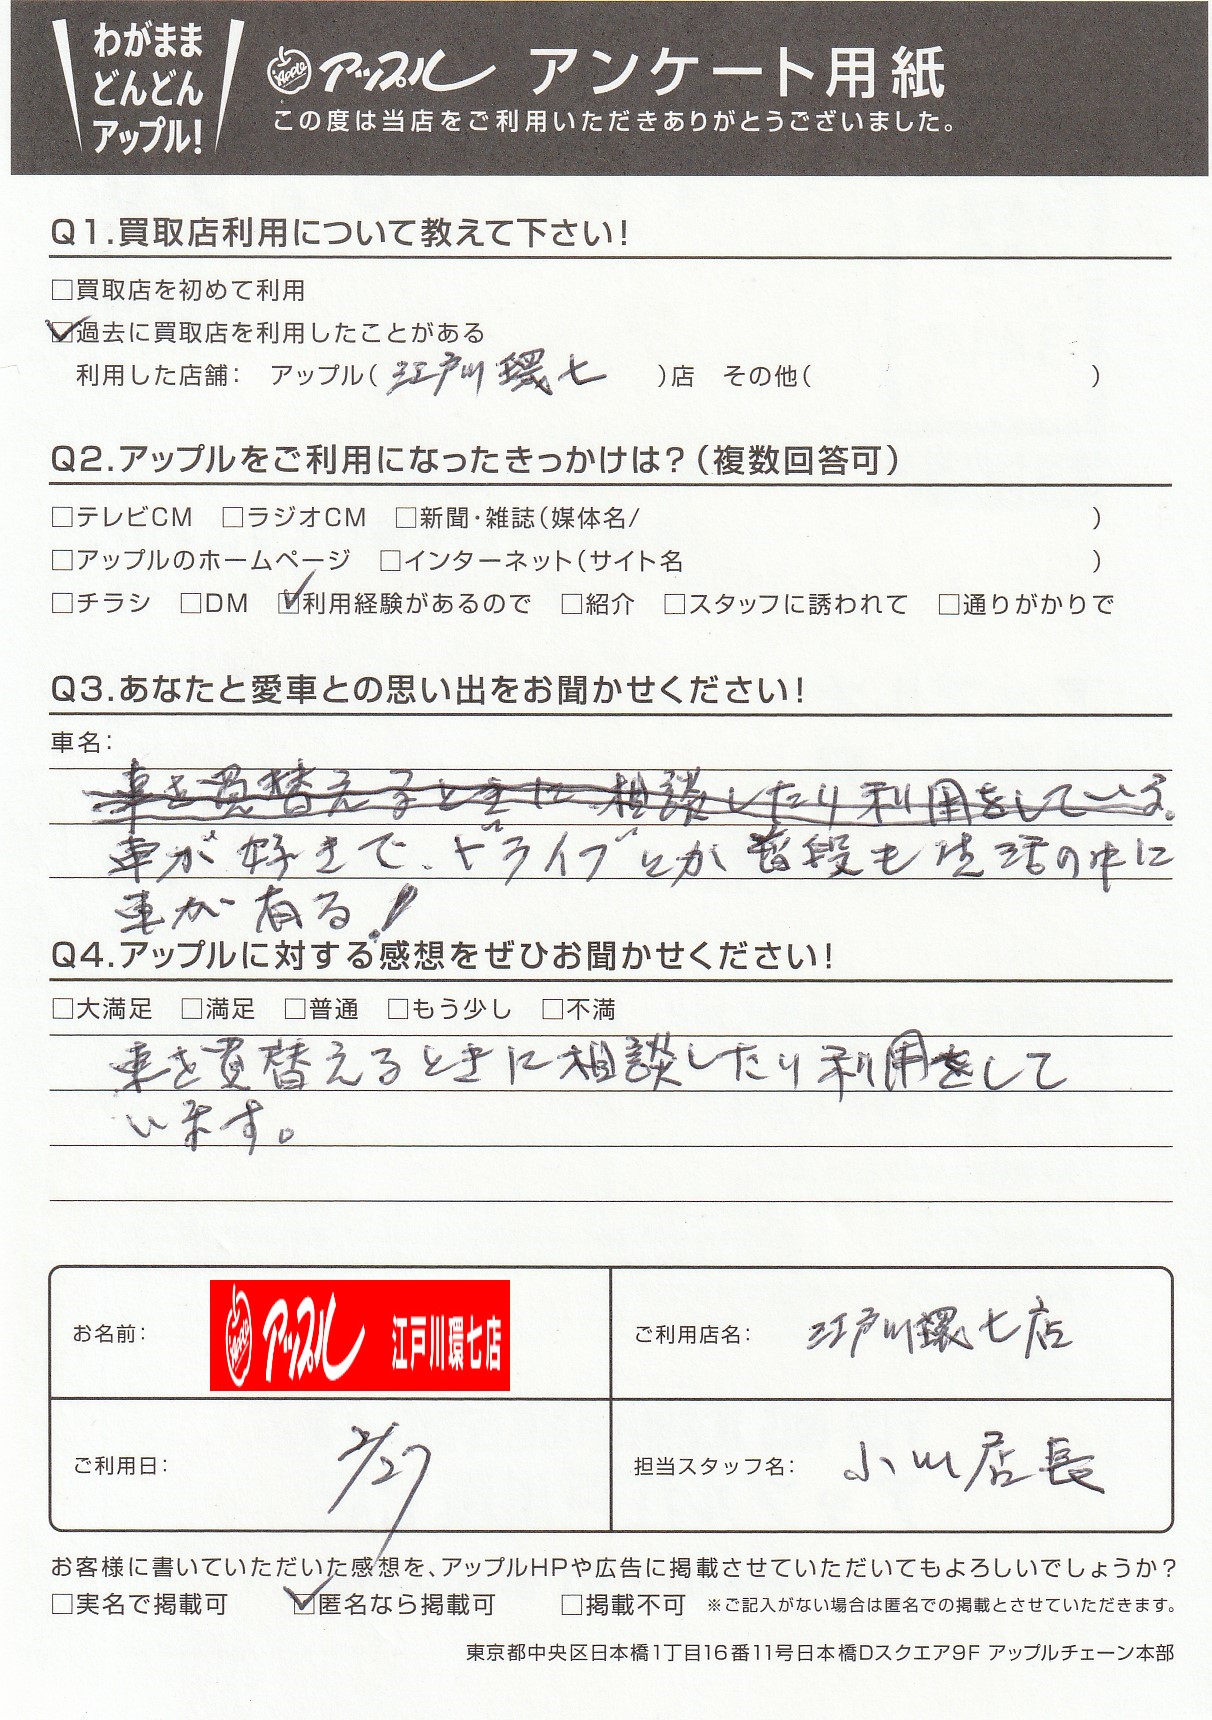 わがまま
どんどん
アップル!
Apple アップル アンケート用紙
この度は当店をご利用いただきありがとうございました。
Q1.買取店利用について教えて下さい!
□買取店を初めて利用
☑過去に買取店を利用したことがある
利用した店舗: アップル(江戸川環七)店 その他( )
Q2.アップルをご利用になったきっかけは?(複数回答可)
□テレビCM □ラジオCM □新聞・雑誌(媒体名/ )
□アップルのホームページ □インターネット(サイト名 )
□チラシ □DM ☑利用経験があるので □紹介 □スタッフに誘われて □通りがかりで
Q3.あなたと愛車との思い出をお聞かせください!
車名:
車を買替えるときに相談したり利用をしている。
車が好きで、ドライブとか普段も生活の中に
車が有る!
Q4.アップルに対する感想をぜひお聞かせください!
□大満足 □満足 □普通 □もう少し □不満
車を買替えるときに相談したり利用をして
います。
お名前: Apple アップル 江戸川環七店
ご利用店名: 江戸川環七店
ご利用日: 2/27
担当スタッフ名: 小川店長
お客様に書いていただいた感想を、アップルHPや広告に掲載させていただいてもよろしいでしょうか?
□実名で掲載可 ☑匿名なら掲載可 □掲載不可 ※ご記入がない場合は匿名での掲載とさせていただきます。
東京都中央区日本橋1丁目16番11号日本橋Dスクエア9F アップルチェーン本部